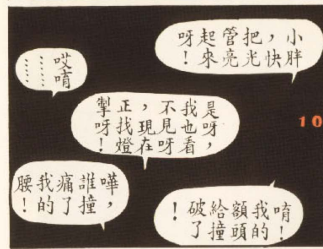 小胖
，快
把光
管亮
起來
呀！
哎唷
……
……
是呀，
我也看
不見呀
，現在
正找燈
掣呀！
嘩，
誰撞
痛了
我的
腰！
唷！
我的
額頭
給撞
破了
！
10